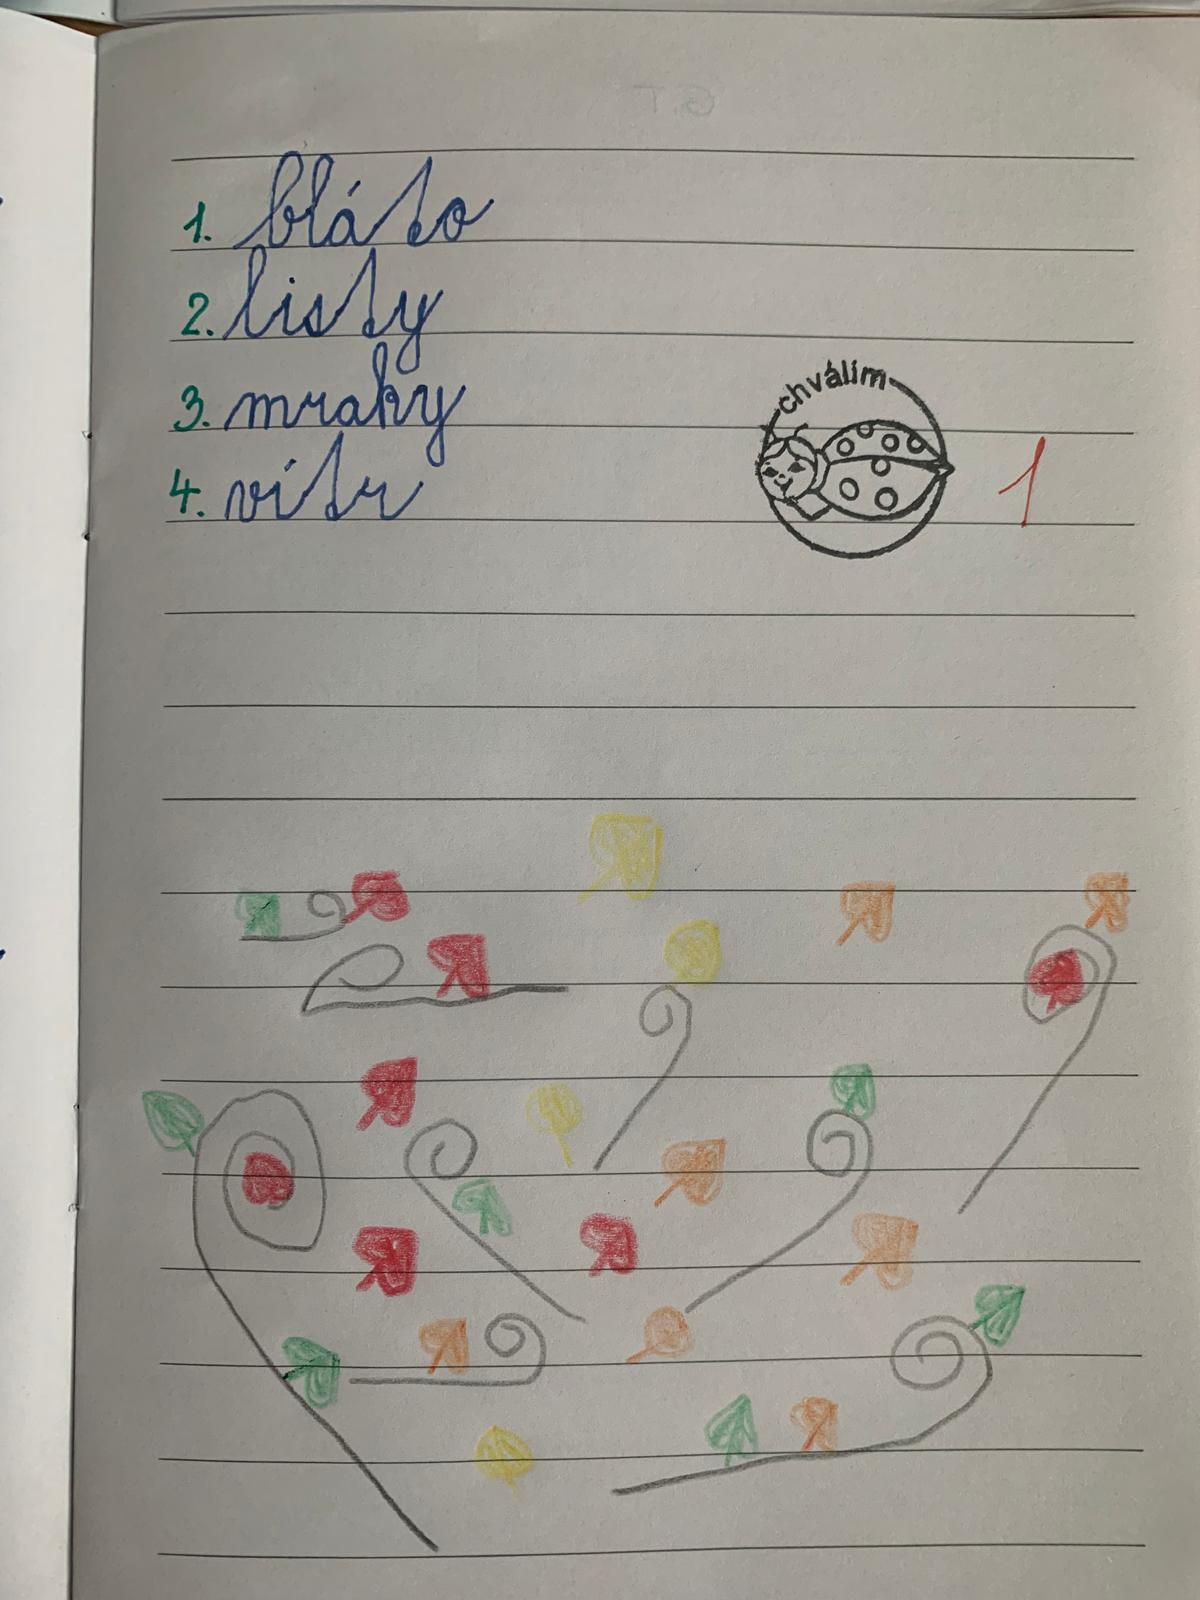 1. bláto
2. listy
3. mraky
4. vítr
chválím
1